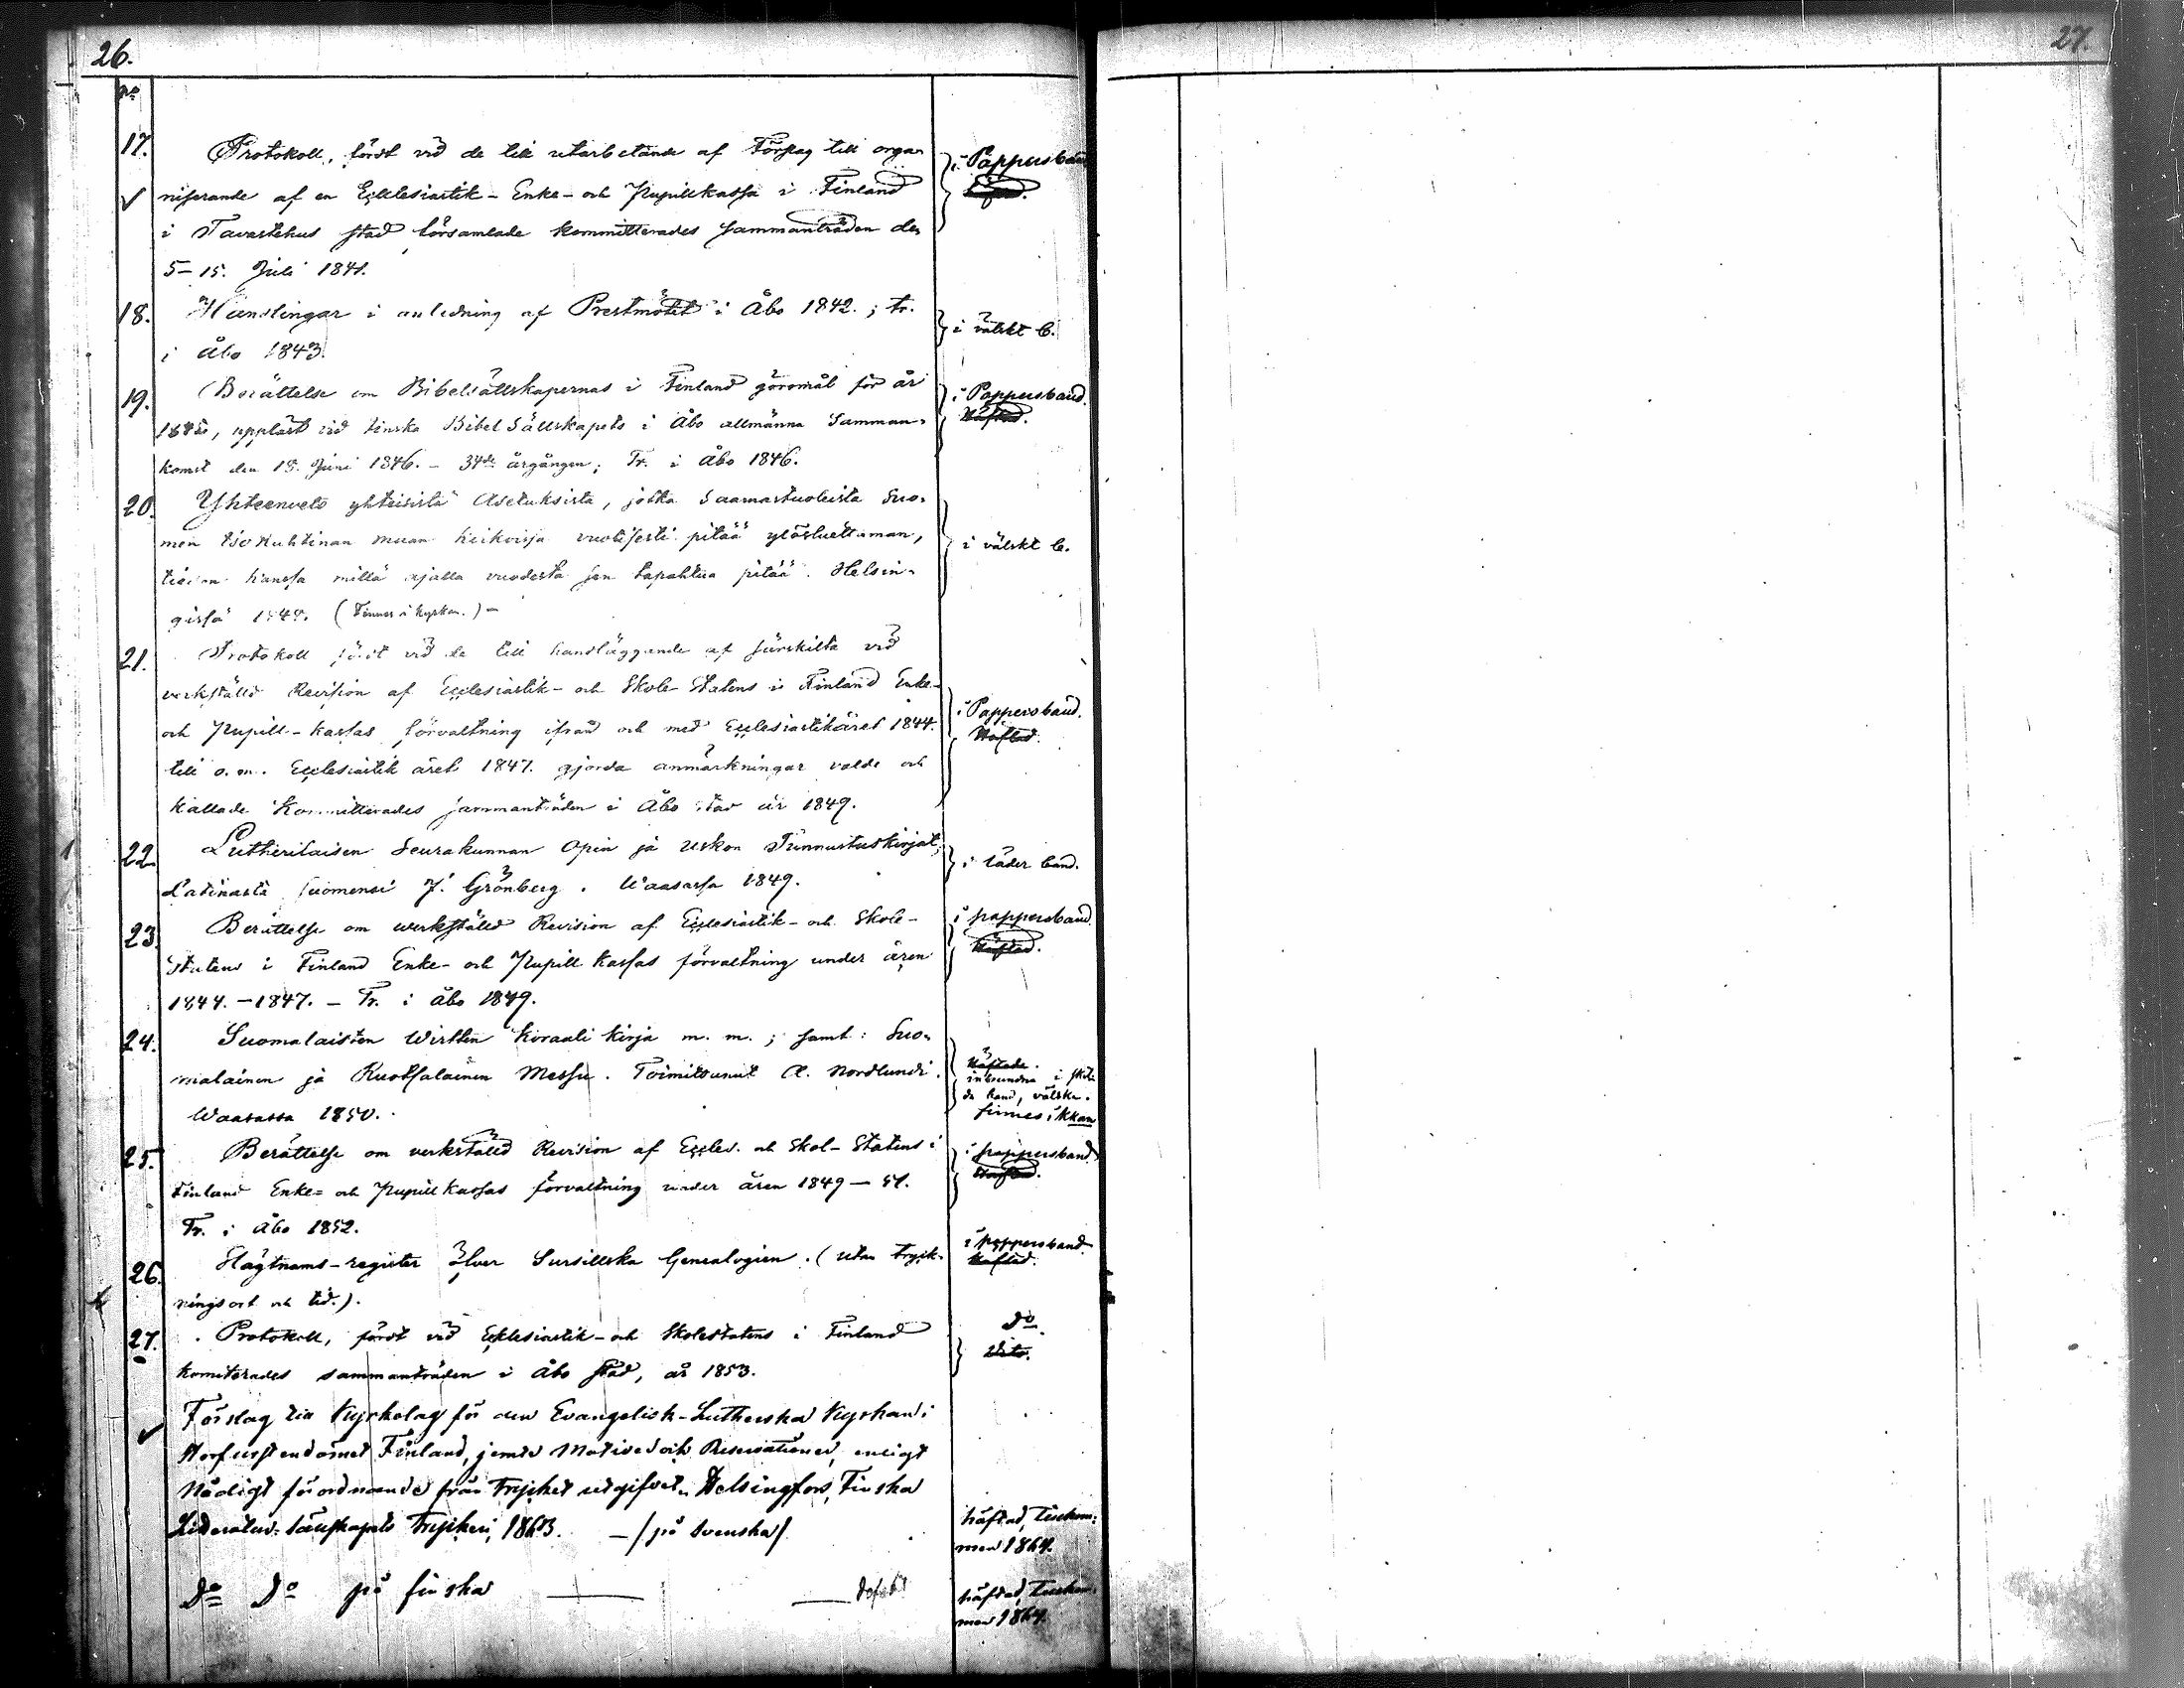 26.
27.
No
17. Protokoll, fördt vid de till utarbetande af Förslag till orga-
niserande af en Ecclesiastik- Enke- och Pupillkassa i Finland
i Tavastehus stad församlade kommitterades sammanträden den
5-15. Juli 1841.
i Pappersband
Häftad.
18. Handlingar i anledning af Prestmötet i Åbo 1842.; tr.
i Åbo 1843.
i välskt b.
19. Berättelse om Bibelsällskapernas i Finland göromål för år
1845, uppläst vid Finska Bibel Sällskapets i Åbo allmänna Samman-
komst den 18. Juni 1846. - 34de årgången; Tr. i Åbo 1846.
i Pappersband.
Häftad.
20. Yhteenveto yhteisistä Asetuksista, jotka Saarnastuoleista Suo-
men Isoruhtinan maan keikoissa vuotisesti pitää ylösluettaman,
tiedon kanssa millä ajalla vuodesta sen tapahtua pitää. Helsin-
gissä 1848. (Finnes i kyrkan.) -
i välskt b.
21. Protokoll fördt vid de till handläggande af särskilta vid
verkställd Revision af Ecclesiastik- och Skole-Statens i Finland Enke-
och Pupill-kassas förvaltning ifrån och med Ecclesiastikåret 1844.
till o. m. Ecclesiastik året 1847. gjorda anmärkningar valde och
kallade Kommitterades sammanträden i Åbo stad år 1849.
i Pappersband.
Häftad.
22. Lutherilaisen Seurakunnan Opin ja Uskon Tunnustuskirjat;
Latinasta Suomensi J. Grönberg. Waasassa 1849.
i läder band.
23. Berättelse om werkställd Revision af Ecclesiastik- och Skole-
Statens i Finland Enke- och Pupill kassas förvaltning under åren
1844.-1847. - Tr. i Åbo 1849.
i pappersband
Häftad.
24. Suomalaisten Wirtten Koraali Kirja m. m.; samt: Suo-
malainen ja Ruotsalainen Messu. Toimittanut A. Nordlund.
Waasassa 1850.
Häftade.
inbundna i skil-
da band, välska.
finnes i Kkan
25. Berättelse om verkställd Revision af Eccles. och Skol-Statens i
Finland Enke- och Pupill kassas förvaltning under åren 1849-51.
Tr. i Åbo 1852.
i pappersband.
Häftad.
26. Slägtnamns-register öfver Sursillska Genealogien. (Utan tryck-
nings ort och tid.).
i pappersband.
Häftad.
27. Protokoll, fördt vid Ecklesiastik- och Skolestatens i Finland
komiterades sammanträden i Åbo stad, år 1853.
Do
Dito.
Förslag till Kyrkolag för den Evangelisk-Lutherska Kyrkan i
Storfurstendömet Finland, jemte Motiver och Reservationer, enligt
Nådigt förordnande från trycket utgifvet. Helsingfors, Finska
Litteratur-Sällskapets Tryckeri, 1863. - /på Svenska/
häftad, Tillkom-
men 1864.
Do Do på finska — — Defekt
häftad, Tillkom-
men 1864.